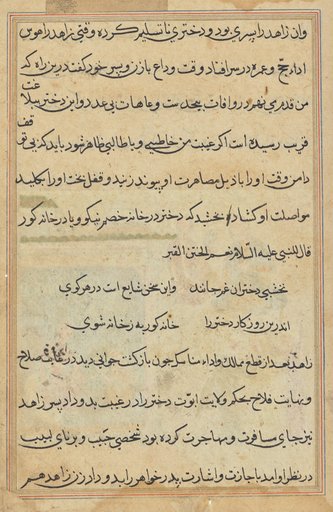 وان زاهد را پسری بود و دختری نا تسلیم کرده وقتی زاهد را هوس
اداء حج و عمره در سر افتاد وقت وداع با زن و پسر خود کفت درین راه که
من قدم می نهم در و افات بیحدست و عاهات بی عدد و این دختر ببلاغت
قریب رسیده است اکر غیبت من خاطبی و یا طالبی ظاهر شود باید که بی توقف
دامن وقت او را باذیل مصاهرت او پیوند زنید و قفل بخت او را بکلید
مواصلت او کشاد نخشبی که دختر در خانه خصم نیکو و یا در خانه کور
قال للنبی علیه السلام نعم الختن القبر
نخشبی دختران غم جانند واین سخن شایع است در هر کوی
اندرین روزکار دختر را خانه کور به ز خانه شوی
زاهد بعد از قطع ممالک و اداء مناسک چون باز کشت جوانی دید در غایت صلاح
و نهایت فلاح بحکم ولایت ابوت دختر را در رغبت بدو داد پسر زاهد
نیز جای مسافرت و مهاجرت کرده بود شخصی حبیب و برنای لبیب
در نظر او امد باجازت و اشارت پدر خواهر را بدو داد زن زاهد هم